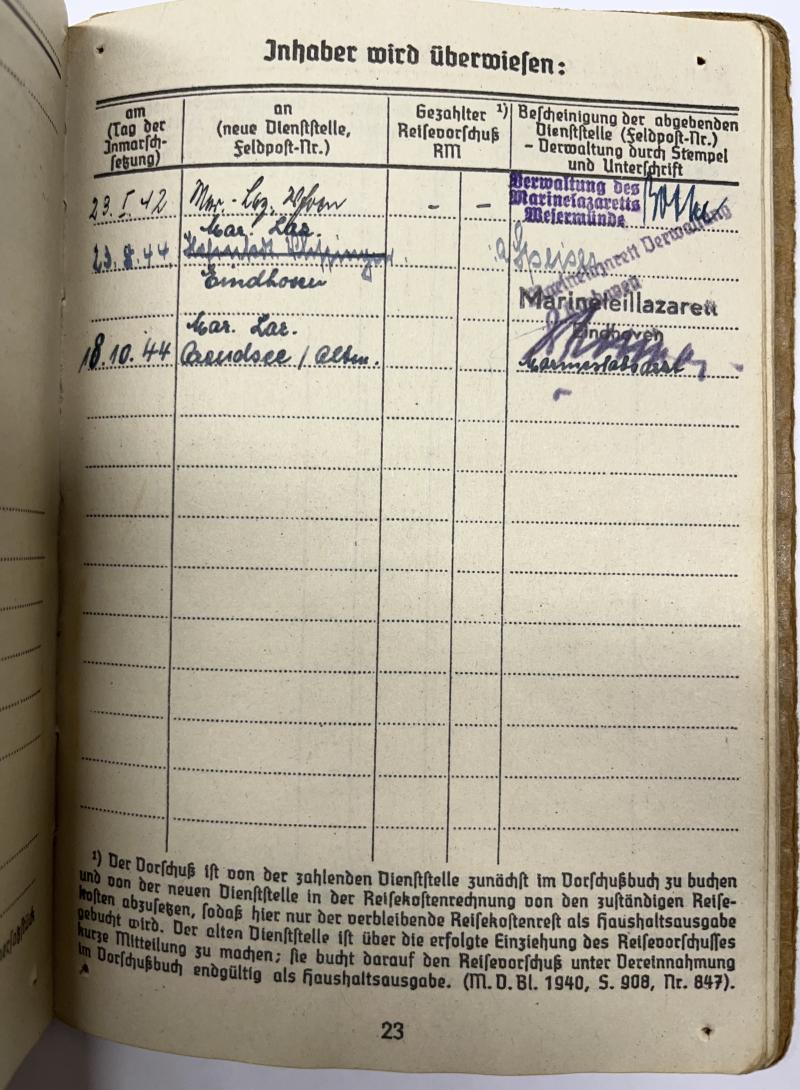 Inhaber wird überwiesen:
am
(Tag der
Inmarsch-
setzung)
an
(neue Dienststelle,
Feldpost-Nr.)
Gezahlter ¹)
Reisevorschuß
RM
Bescheinigung der abgebenden
Dienststelle (Feldpost-Nr.)
- Verwaltung durch Stempel
und Unterschrift
23. I. 42 Mar.-Laz. - -
Verwaltung des
Marinelazaretts
Wesermünde
Mar. Laz.
23. 8. 44
Eindhoven
Marinelazarett Verwaltung
Marineteillazarett
Eindhoven
Mar. Laz.
18. 10. 44 Arendsee / Altm.
Marinestabsarzt
¹) Der Vorschuß ist von der zahlenden Dienststelle zunächst im Vorschußbuch zu buchen
und von der neuen Dienststelle in der Reisekostenrechnung von den zuständigen Reise-
kosten abzusetzen, sodaß hier nur der verbleibende Reisekostenrest als Haushaltsausgabe
gebucht wird. Der alten Dienststelle ist über die erfolgte Einziehung des Reisevorschusses
kurze Mitteilung zu machen; sie bucht darauf den Reisevorschuß unter Vereinnahmung
im Vorschußbuch endgültig als Haushaltsausgabe. (M. D. Bl. 1940, S. 908, Nr. 847).
23